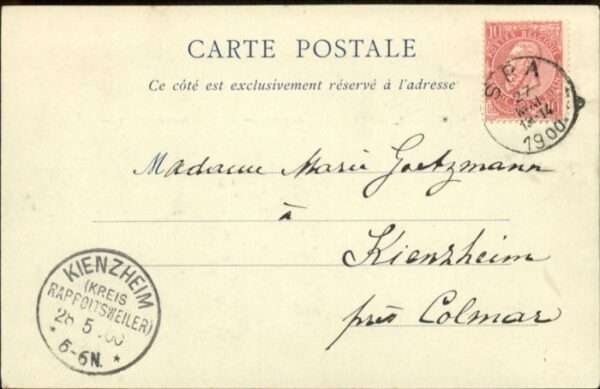 CARTE POSTALE
Ce côté est exclusivement réservé à l'adresse
10
SPA
27
13-14
1900
Madame Marie Goetzmann
à
Kienzheim
près Colmar
KIENZHEIM
(KREIS
RAPPOLTSWEILER)
28 5 00
* 5-6N. *